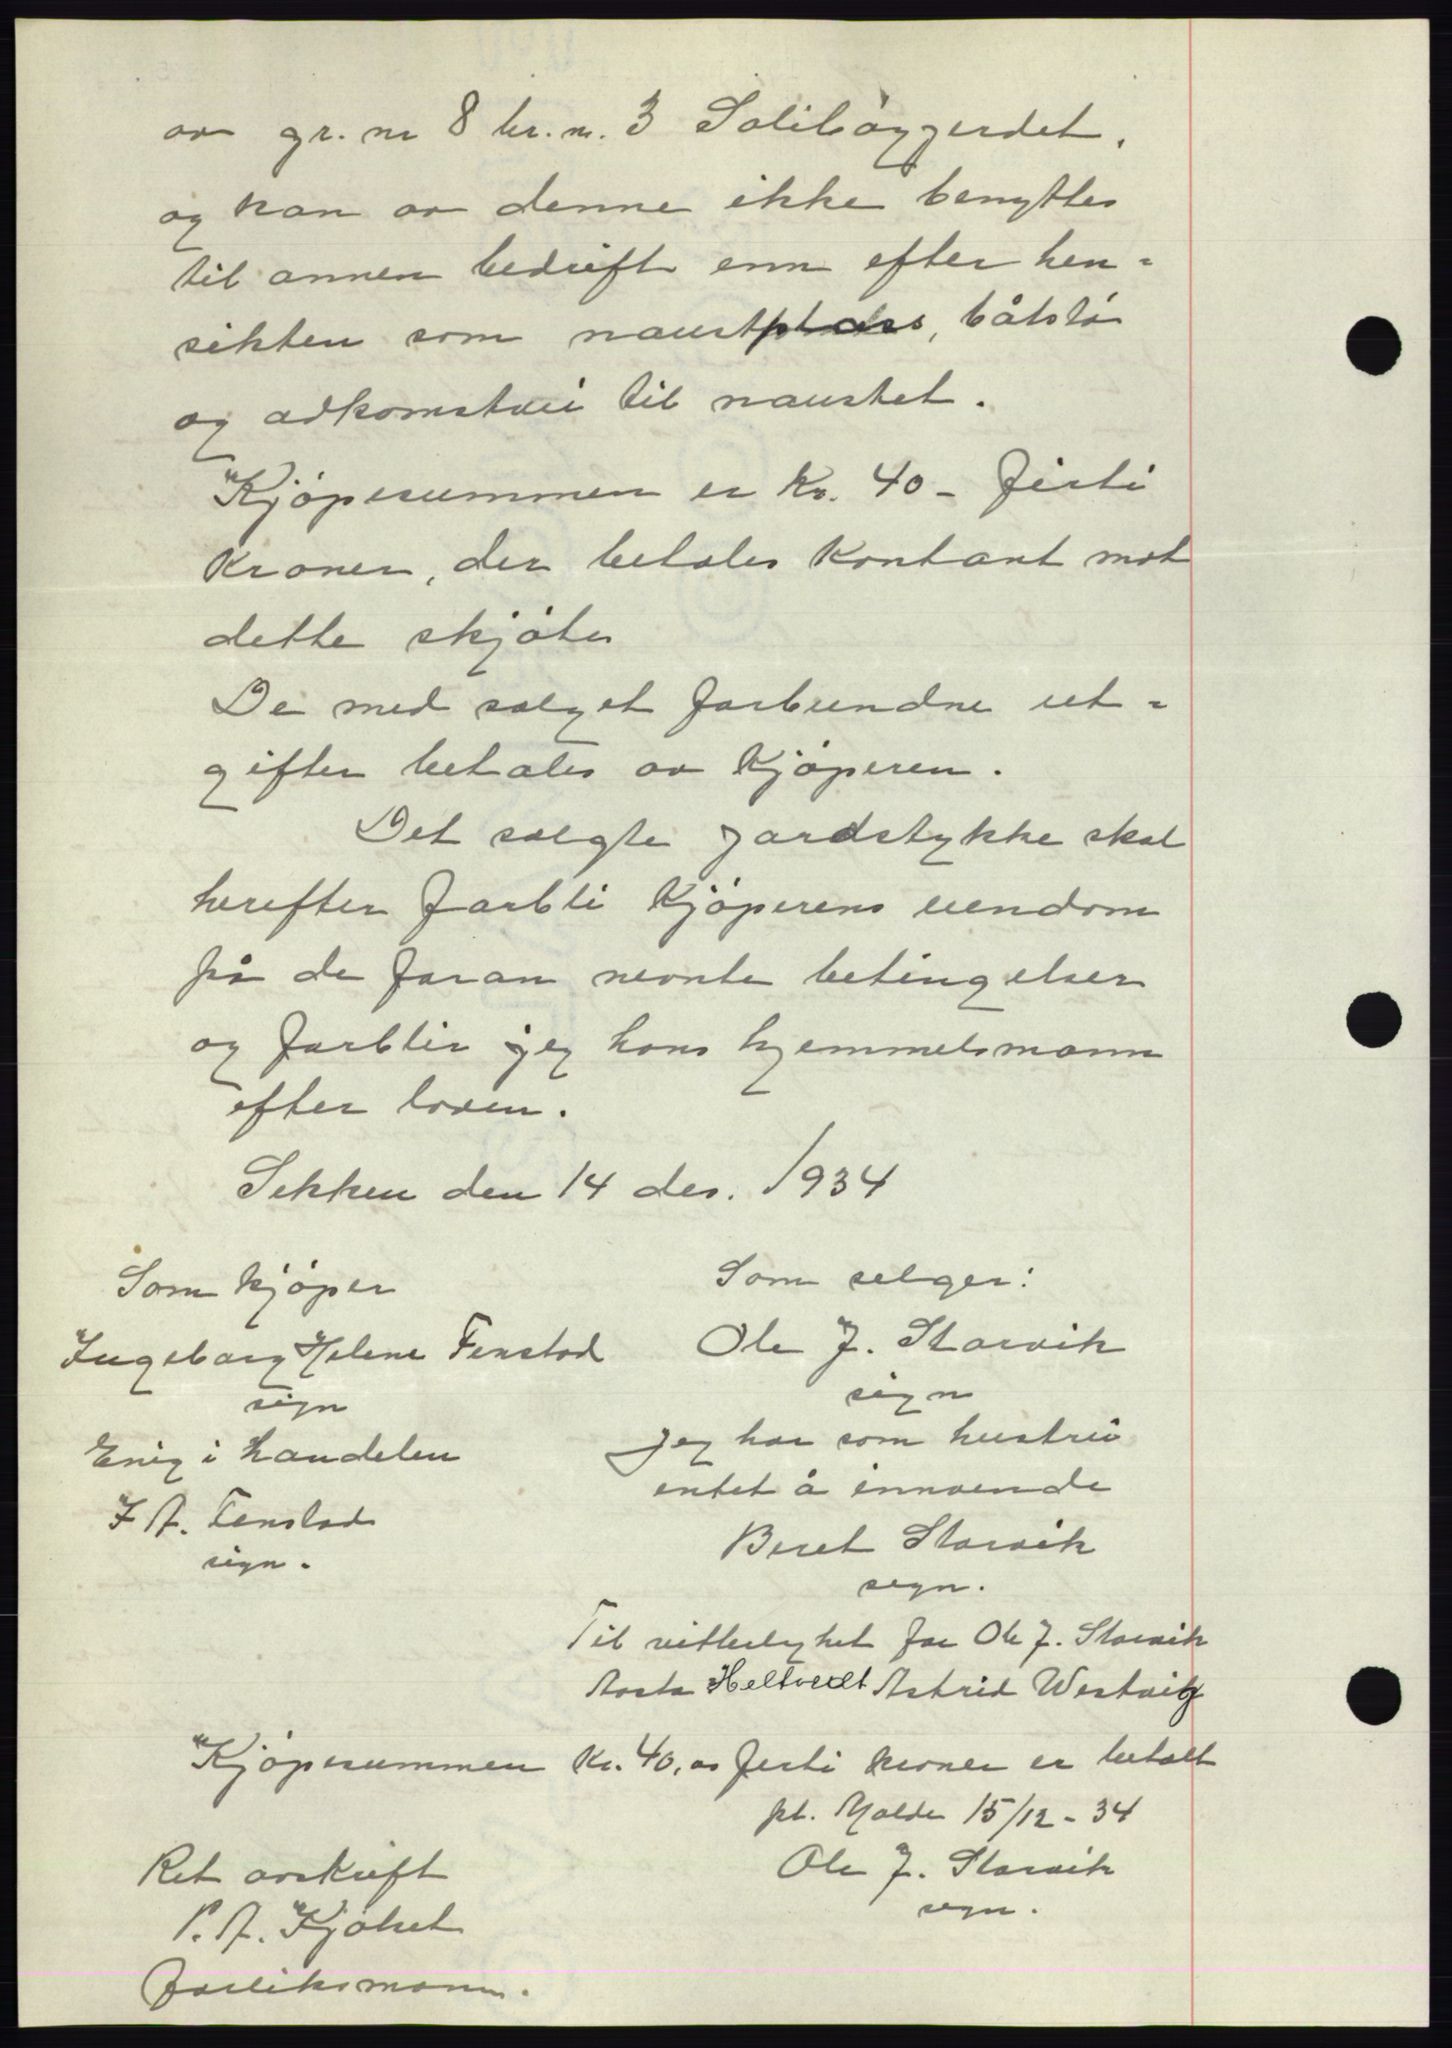 av gr. nr 8 br. nr. 3 Solibøggerdet,
og kan av denne ikke benyttes
til annen bedrift enn efter hen-
sikten som naustplass, båtstø
og adkomstvei til naustet.
Kjøpesummen er kr. 40 - førti
kroner, der betales kontant mot
dette skjøte
De med salget forbundne ut-
gifter betales av kjøperen.
Det solgte jordstykke skal
herefter forbli kjøperens eiendom
på de foran nevnte betingelser
og forblir jeg hans hjemmelsmann
efter loven.
Sekken den 14 des. 1934
Som kjøper
Ingeborg Helene Fenstad
sign
Enig i handelen
I A. Fenstad
sign.
Som selger:
Ole J. Storvik
sign
Jeg har som hustru
intet å innvende
Beret Storvik
sign.
Til vitterlighet for Ole J. Storvik
Aasta Heltvedt Astrid Westvig
Kjøpesummen kr. 40,00 førti kroner er betalt
pt. Molde 15/12 - 34
Ole J. Storvik
sign.
Ret avskrift
P. A. Kjølset
forliksmann.